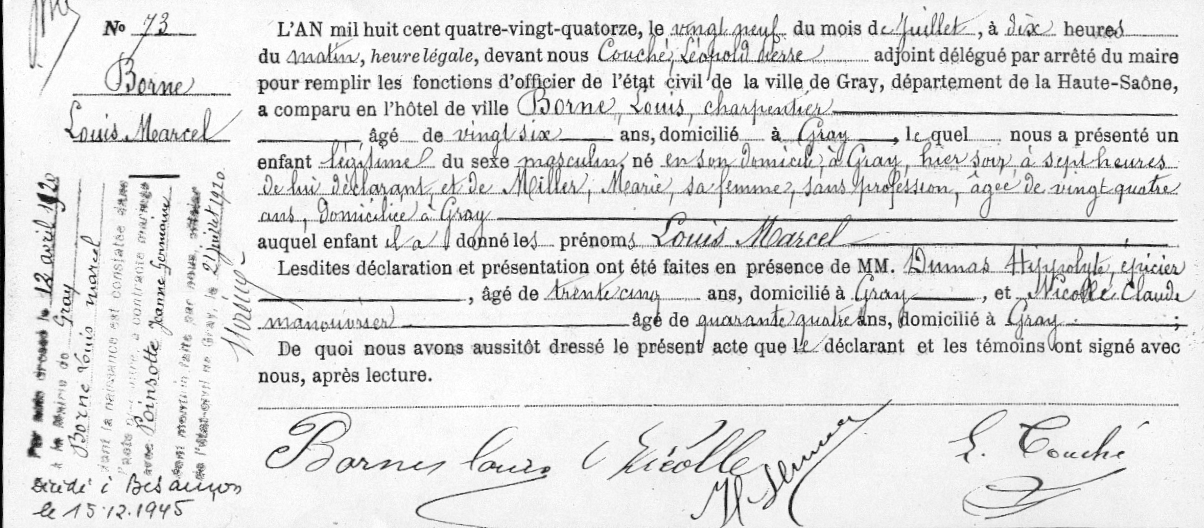 No 73
Borne
Louis Marcel
L'AN mil huit cent quatre-vingt-quatorze, le vingt neuf du mois de Juillet, à dix heures
du matin, heure légale, devant nous Couché, Léopold Pierre adjoint délégué par arrêté du maire
pour remplir les fonctions d'officier de l'état civil de la ville de Gray, département de la Haute-Saône,
a comparu en l'hôtel de ville Borne, Louis, charpentier
âgé de vingt six ans, domicilié à Gray, le quel nous a présenté un
enfant légitime du sexe masculin, né en son domicile, à Gray, hier soir, à sept heures
de lui déclarant, et de Miller, Marie, sa femme, sans profession, âgée de vingt quatre
ans, domiciliée à Gray
auquel enfant il a donné les prénoms Louis Marcel
Lesdites déclaration et présentation ont été faites en présence de MM. Dumas Hippolyte, épicier
, âgé de trente cinq ans, domicilié à Gray, et Nicolle Claude
manouvrier âgé de quarante quatre ans, domicilié à Gray ;
De quoi nous avons aussitôt dressé le présent acte que le déclarant et les témoins ont signé avec
nous, après lecture.
Bornes Louis Nicolle
L. Couché
12 avril 1920
à la mairie de Gray
Borne Louis Marcel
dont la naissance est constatée
a contracté mariage
avec Poinsotte Jeanne Germaine
mention faite par nous
de l'état-civil de Gray, le 21 juillet 1920
Décédé à Besançon
le 15.12.1945